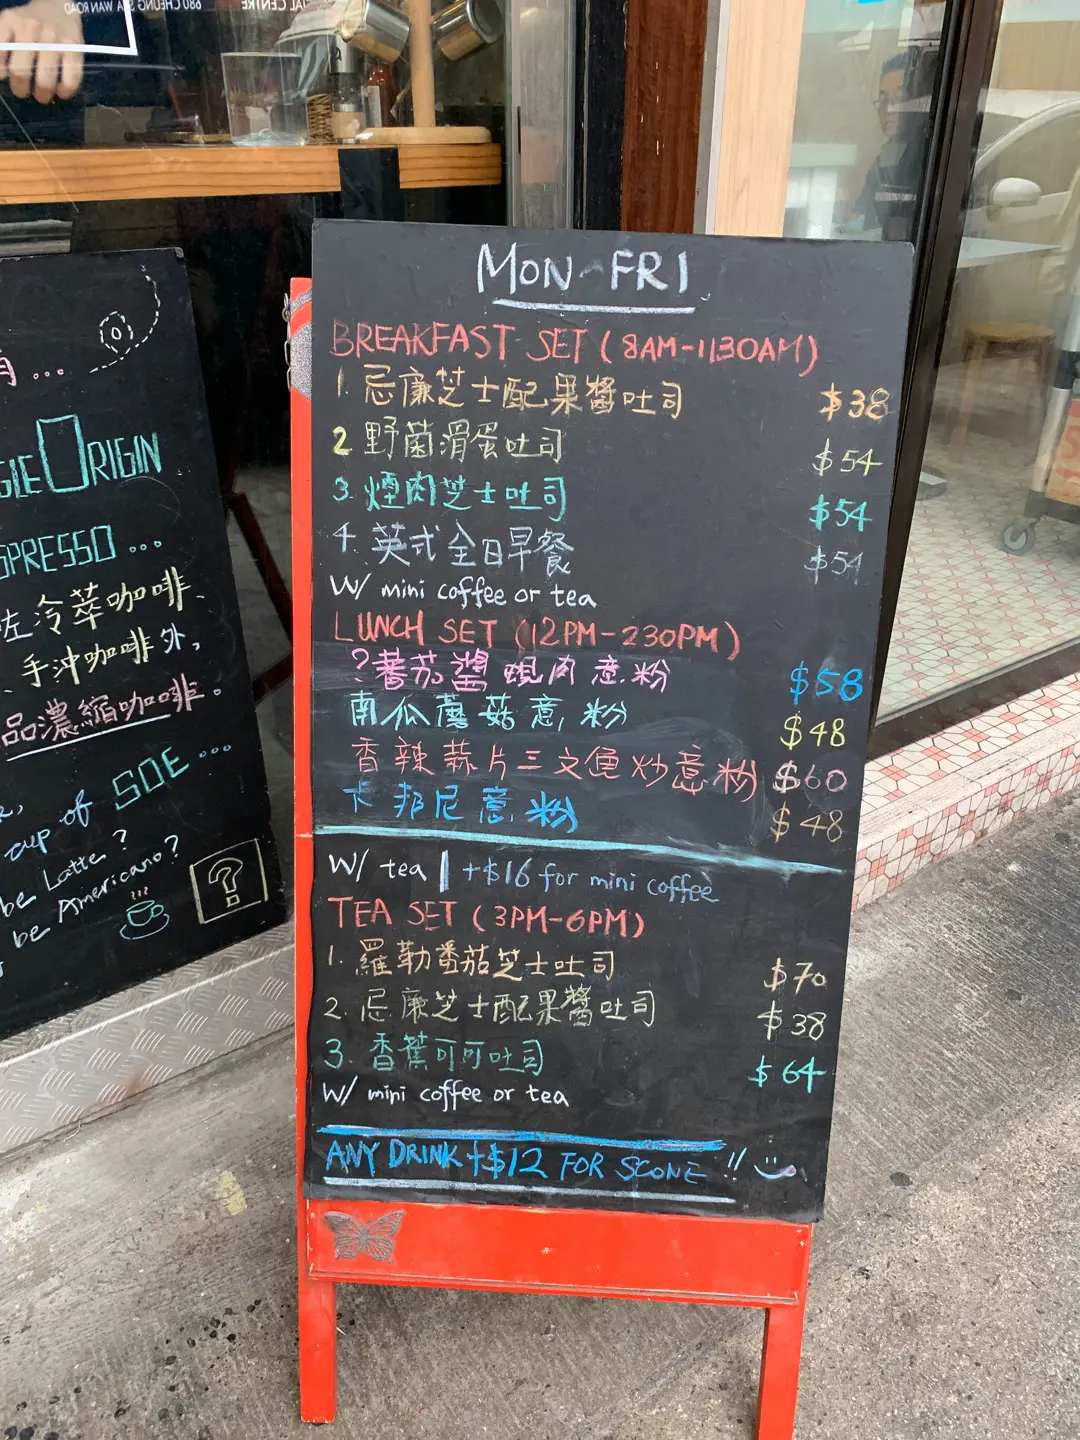 680 CHEUNG SHA WAN ROAD
MON-FRI
BREAKFAST SET (8AM-1130AM)
1. 忌廉芝士配果醬吐司 $38
2 野菌滑蛋吐司 $54
3. 煙肉芝士吐司 $54
4. 英式全日早餐 $54
W/ mini coffee or tea
LUNCH SET (12PM-230PM)
?蕃茄醬蜆肉意粉 $58
南瓜蘑菇意粉 $48
香辣蒜片三文魚炒意粉 $60
卡邦尼意粉 $48
W/ tea | +$16 for mini coffee
TEA SET (3PM-6PM)
1. 羅勒番茄芝士吐司 $70
2. 忌廉芝士配果醬吐司 $38
3. 香蕉可可吐司 $64
W/ mini coffee or tea
ANY DRINK +$12 FOR SCONE!!
...
GLE ORIGIN
SPRESSO ...
左冷萃咖啡、
、手沖咖啡外,
品濃縮咖啡。
SOE ...
cup of
be Latte?
be Americano?
?